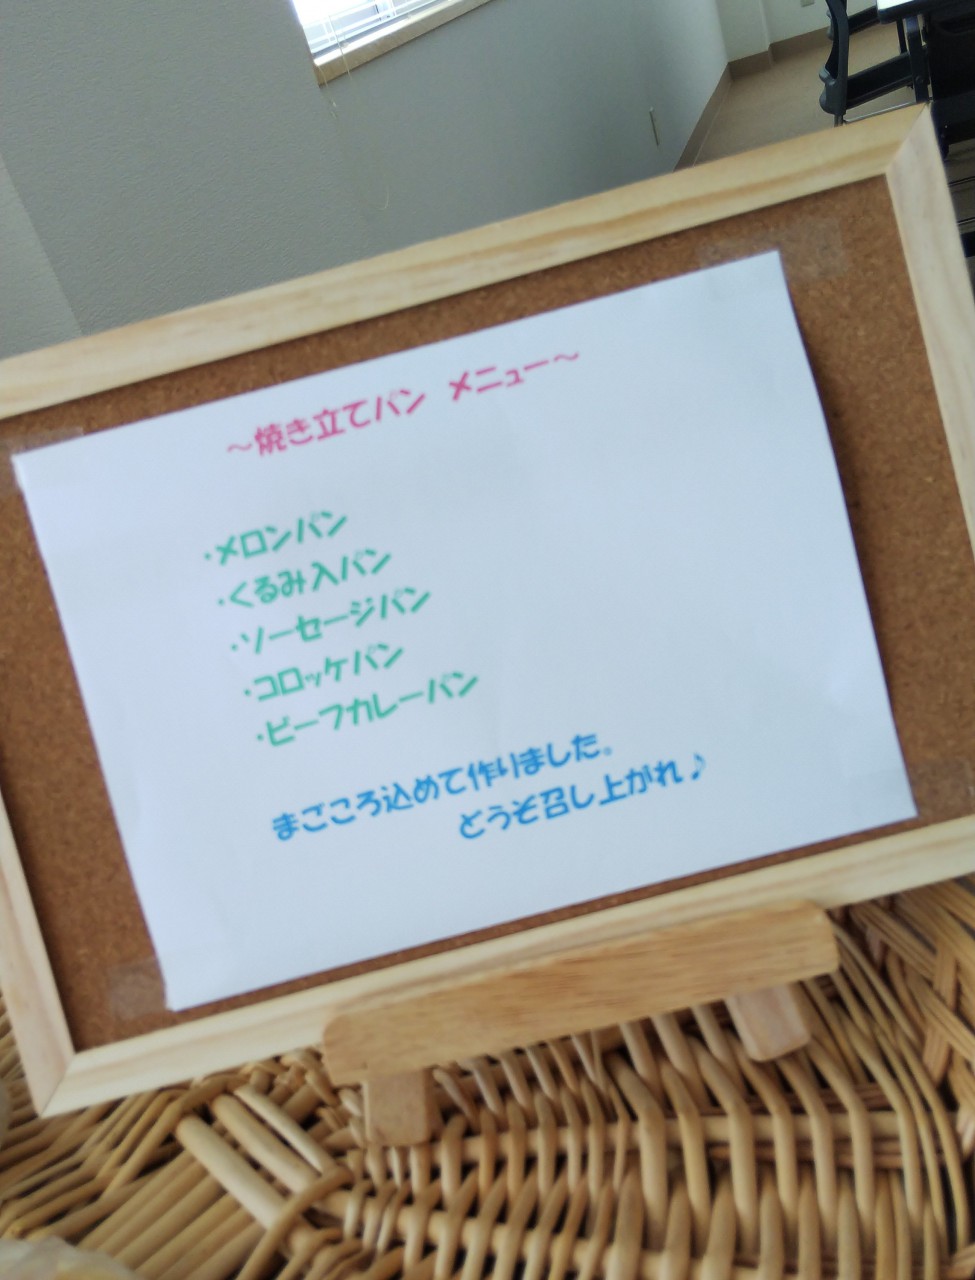 ～焼き立てパン メニュー～
・メロンパン
・くるみ入パン
・ソーセージパン
・コロッケパン
・ビーフカレーパン
まごころ込めて作りました。
どうぞ召し上がれ♪